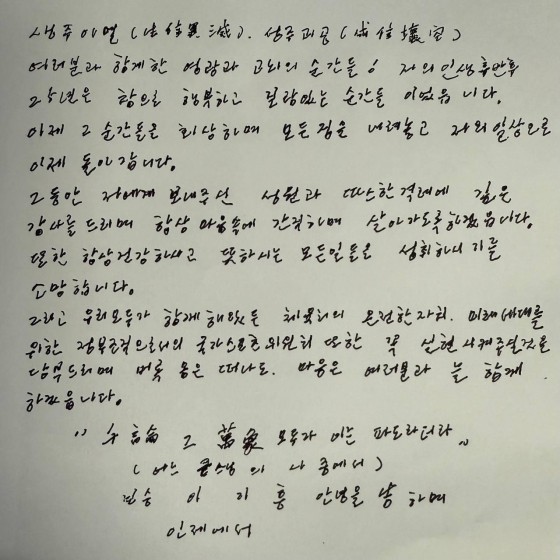 생주이멸(生住異滅). 성주괴공(成住壞空)
여러분과 함께한 영광과 고뇌의 순간들! 저의 인생후반부
25년은 참으로 행복하고 보람있는 순간들 이었읍니다.
이제 그 순간들은 회상하며 모든짐을 내려놓고 저의 일상으로
이제 돌아갑니다.
그동안 저에게 보내주신 성원과 따스한격려에 깊은
감사를 드리며 항상 마음속에 간직하며 살아가도록하겠읍니다.
또한 항상건강하시고 뜻하시는 모든일들을 성취하시기를
소망합니다.
그리고 우리모두가 함께 해왔든 체육회의 온전한자회. 미래세대를
위한 정부조직으로서의 국가스포츠위원회 또한 꼭 실현시켜주실것을
당부드리며 비록 몸은 떠나도. 마음은 여러분과 늘 함께
하겠읍니다.
" 그 萬象 모두가 이는 파도라더라 "
(어느 큰스님의 나 중에서)
이 기 흥 안녕을 고하며
인제에서